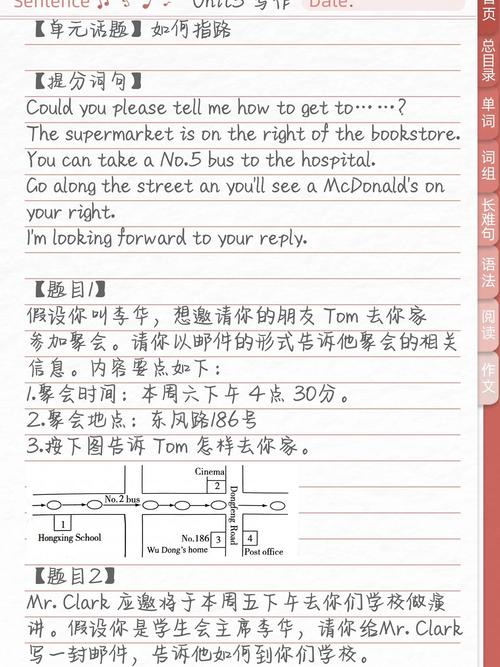 Sentence
Unit3 写作
Date:
【单元话题】如何指路
【提分词句】
Could you please tell me how to get to……?
The supermarket is on the right of the bookstore.
You can take a No.5 bus to the hospital.
Go along the street an you'll see a McDonald's on
your right.
I'm looking forward to your reply.
【题目1】
假设你叫李华，想邀请你的朋友 Tom 去你家
参加聚会。请你以邮件的形式告诉他聚会的相关
信息。内容要点如下：
1.聚会时间：本周六下午 4点 30分。
2.聚会地点：东风路186号
3.按下图告诉 Tom 怎样去你家。
Cinema
2
No.2 bus
Dongfeng Road
1
Hongxing School
No.186
3
4
Wu Dong's home
Post office
【题目2】
Mr. Clark 应邀将于本周五下午去你们学校做演
讲。假设你是学生会主席李华，请你给Mr. Clark
写一封邮件，告诉他如何到你们学校。
首页
总目录
单词
词组
长难句
语法
阅读
作文